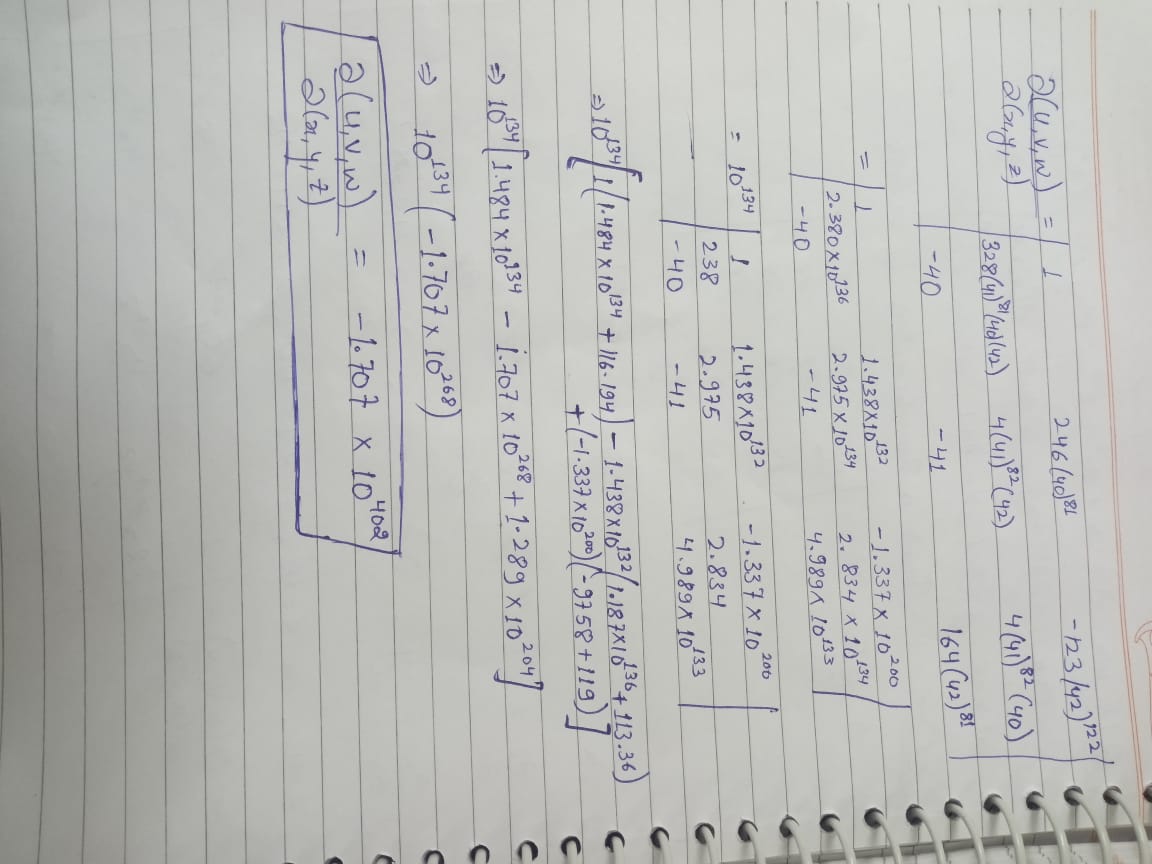 ∂(u,v,w)/∂(x,y,z) = | 1 246(40)^81 -123(42)^122 |
| 328(41)^81(40)(42) 4(41)^82(42) 4(41)^82(40) |
| -40 -41 164(42)^81 |
= | 1 1.438×10^132 -1.337×10^200 |
| 2.380×10^136 2.975×10^134 2.834×10^134 |
| -40 -41 4.989×10^133 |
= 10^134 | 1 1.438×10^132 -1.337×10^200 |
| 238 2.975 2.834 |
| -40 -41 4.989×10^133 |
⇒ 10^134 [1(1.484×10^134 + 116.194) - 1.438×10^132(1.187×10^136 + 113.36)
+ (-1.337×10^200)(-9758+119)]
⇒ 10^134 [1.484×10^134 - 1.707×10^268 + 1.289×10^204]
⇒ 10^134 (-1.707×10^268)
∂(u,v,w)/∂(x,y,z) = -1.707×10^402